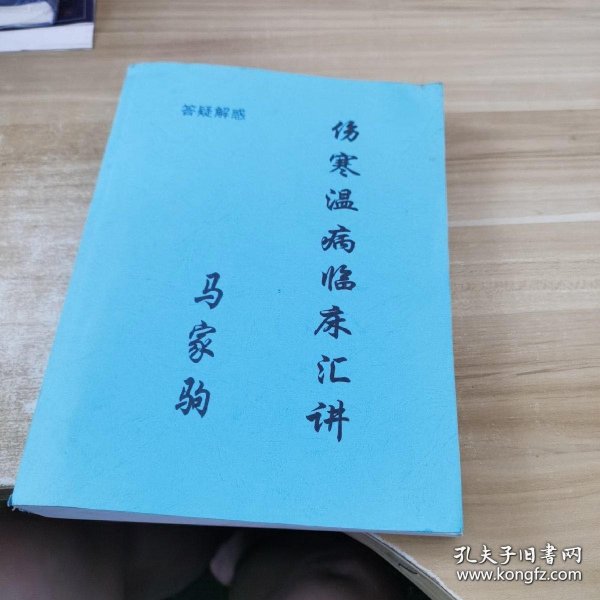 答疑解惑
伤寒温病临床汇讲
马家驹
孔夫子旧书网
www.kongfz.com